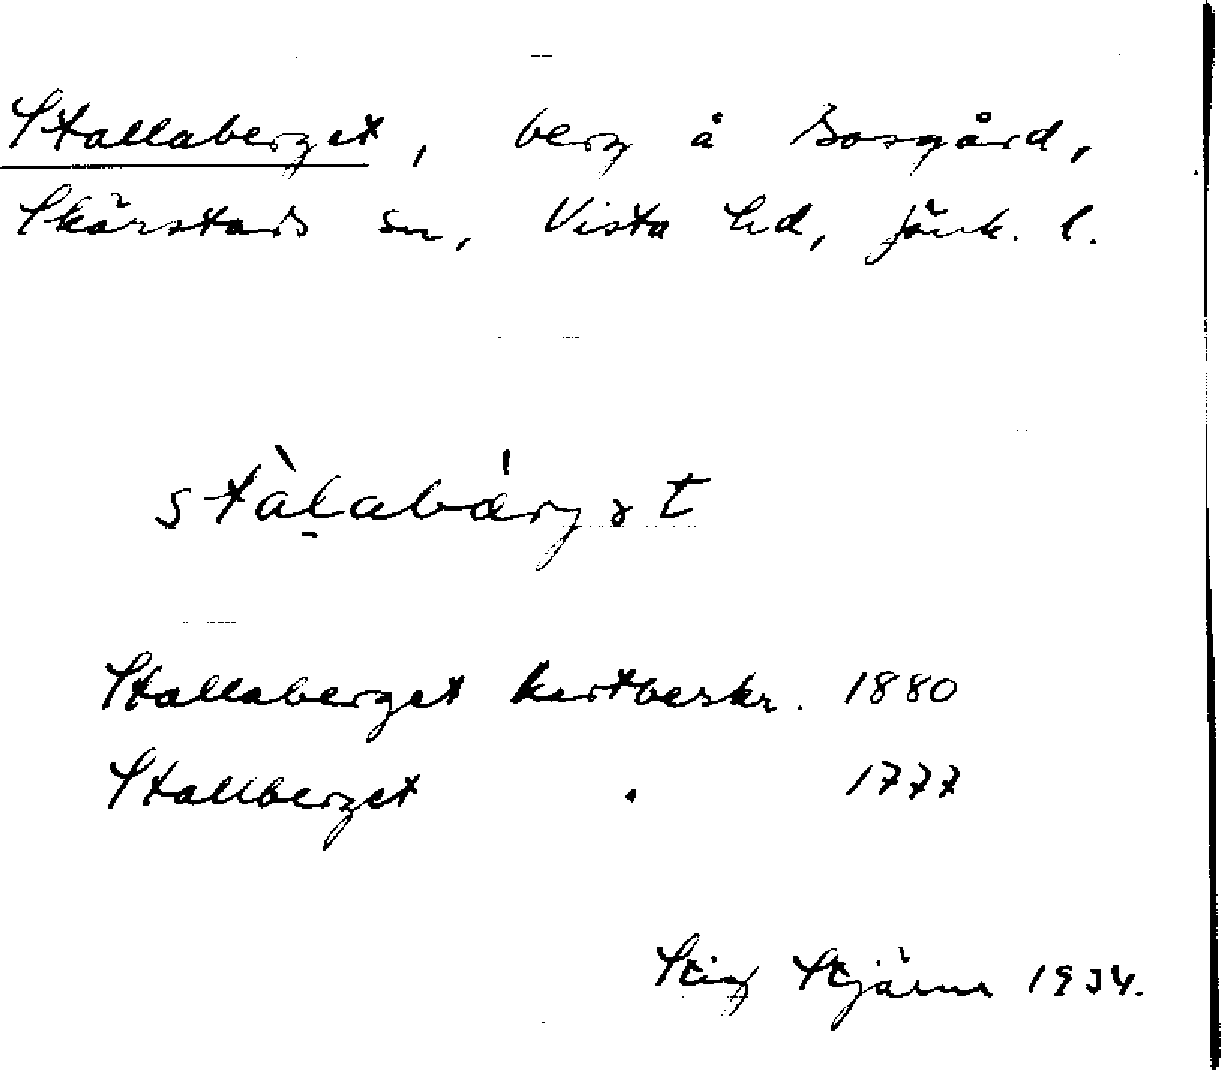 Stallaberget, berg å Bosgård,
Skärstads sn, Vista hd, Jönk. l.
stàlabár̡ət
Stallaberget kartbeskr. 1880
Stallberget " 1777
Stig Stjärna 1934.